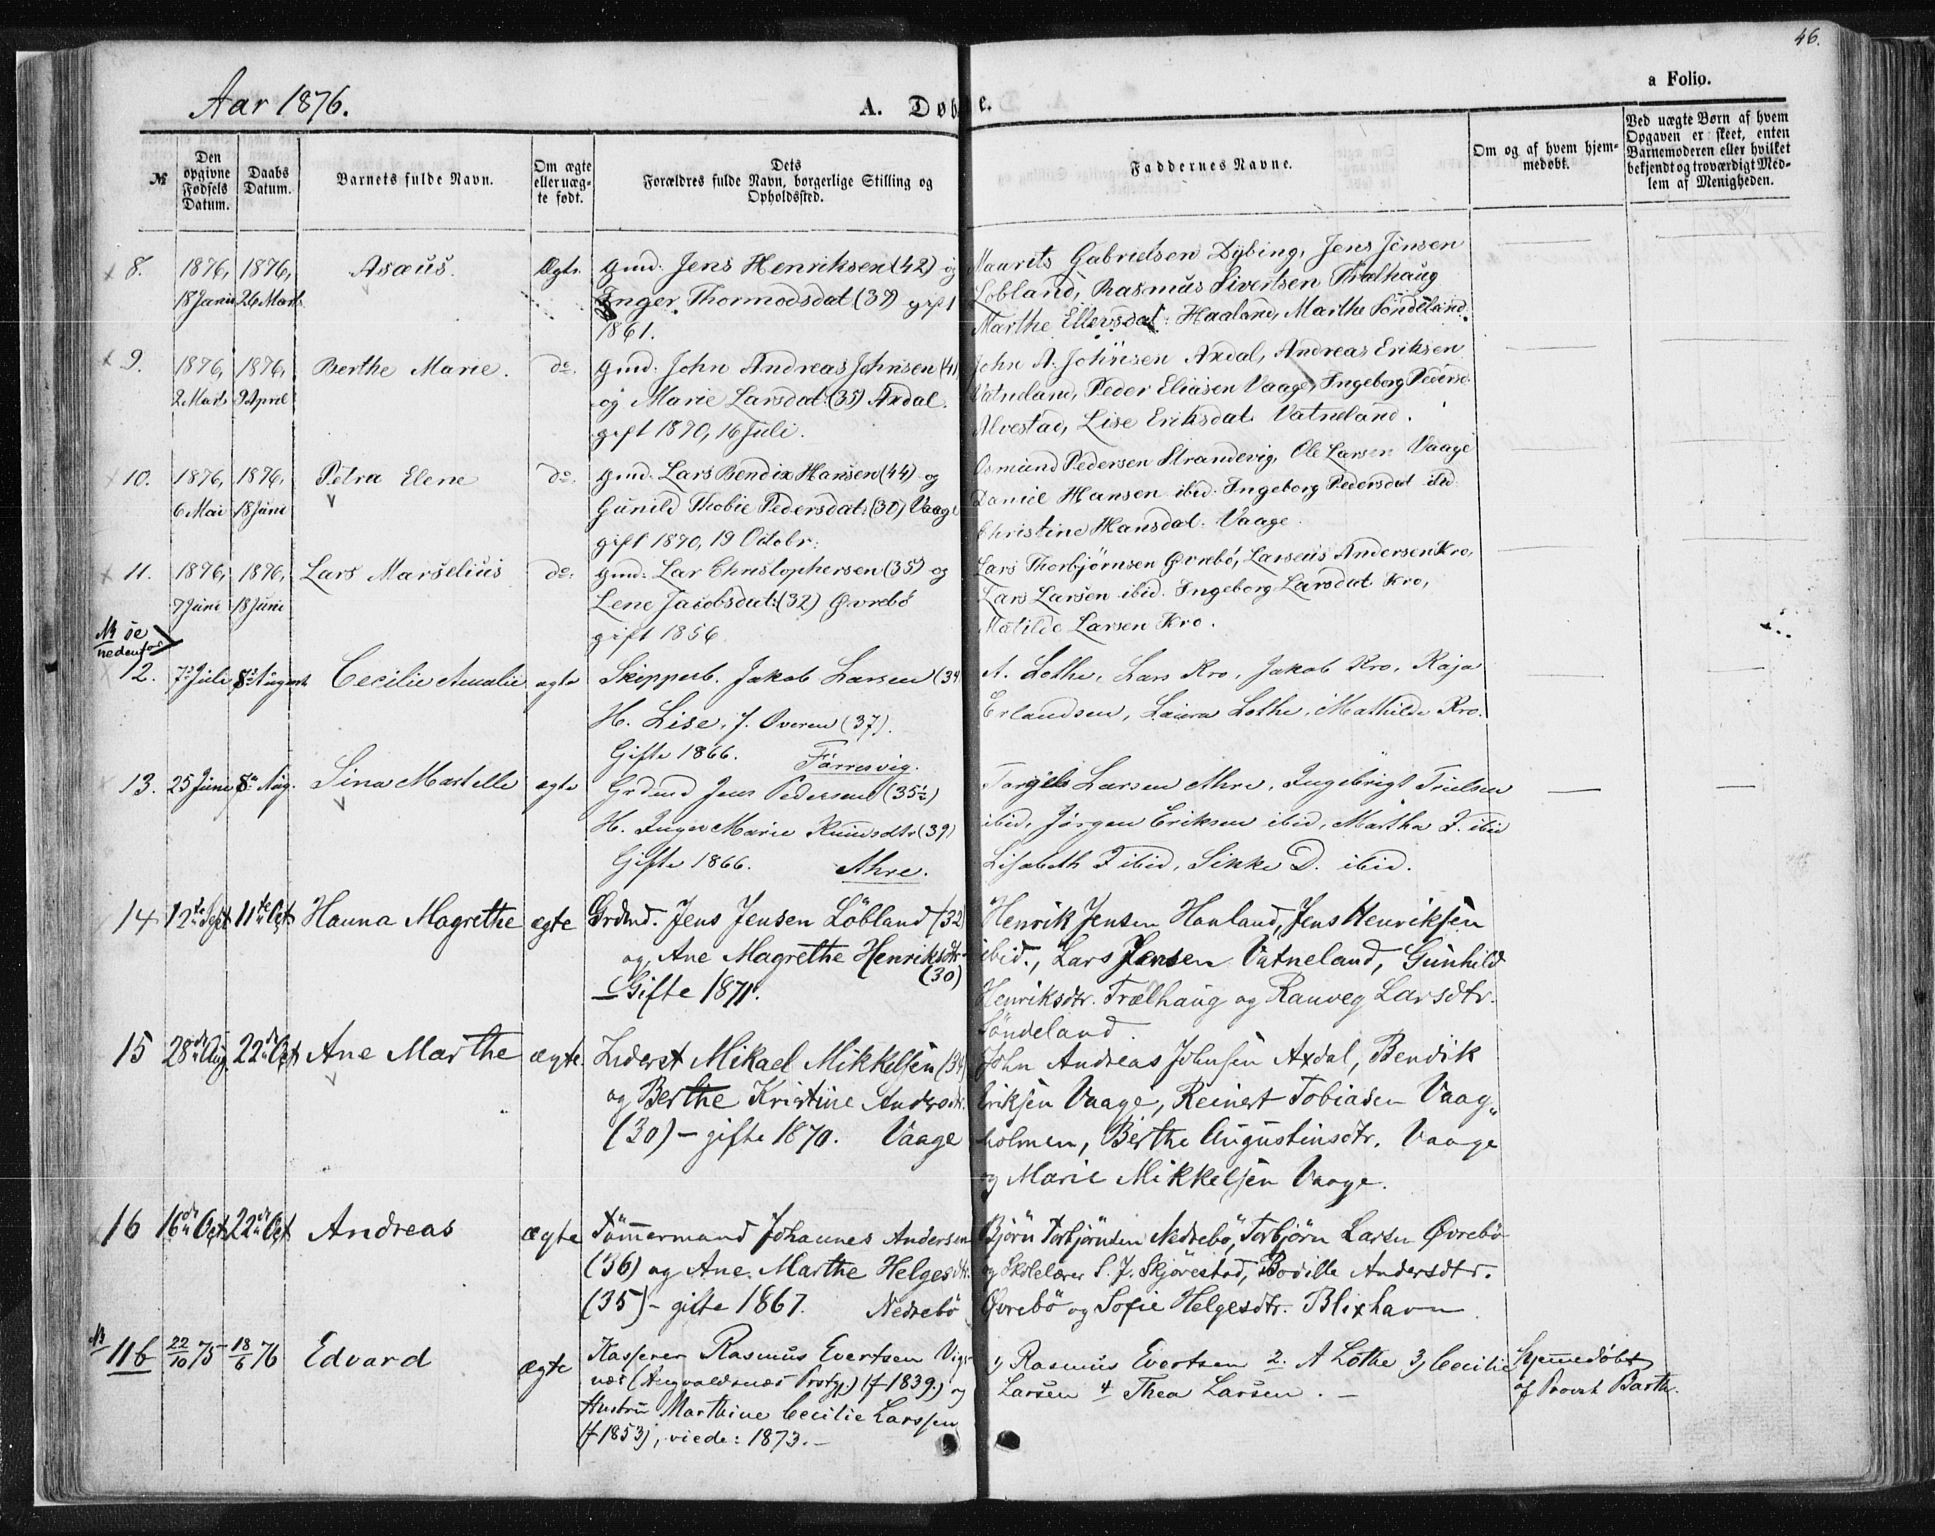 46.
a Folio.
Aar 1876.
A. Døbte.
№
Den opgivne Fødsels Datum.
Daabs Datum.
Barnets fulde Navn.
Om ægte eller uægte født.
Dets Forældres fulde Navn, borgerlige Stilling og Opholdssted.
Faddernes Navne.
Om og af hvem hjemmedøbt.
Ved uægte Børn af hvem Opgaven er skeet, enten Barnemoderen eller hvilket bekjendt og troværdigt Medlem af Menigheden.
8. 1876, 1876, Asæus. Ægte. Gmd. Jens Henriksen (42) og
18 Janu 26 Marts Inger Thormodsdat (39) gift
1861.
Maurits Gabrielsen Dybing, Jens Jensen
Løbland, Rasmus Sivertsen Thrælhaug
Marthe Ellevsdat. Haaland, Marthe Sôndeland.
9. 1876, 1876, Berthe Marie. do. Gmd. John Andreas Johnsen (41)
2 Marts 9 April og Marie Larsdat: (35) Axdal.
gift 1870, 16 Juli.
John A. Johnsen Axdal, Andreas Eriksen
Vatneland, Peder Eliasen Vaage, Ingeborg Pedersd.
Alvestad, Lise Eriksdat. Vatneland.
10. 1876, 1876, Petra Elene do. Gmd. Lars Bendix Hansen (44) og
6 Mai 18 Juni Gunild Thobie Pedersdat: (30) Vaage
gift 1870, 19 Octobr:
Osmund Pedersen Strandevig, Ole Larsen Vaage
Daniel Hansen ibid. Ingeborg Pedersdat ibid
Christine Hansdat. Vaage.
11. 1876, 1876, Lars Marselius do. Gmd. Lar Christophersen (35) og
7 Juni 18 Juni Lene Jacobsdat: (32) Øvrebø
gift 1856
Lars Thorbjørnsen Øvrebö, Larseus Andersen Kro,
Lars Larsen ibid. Ingeborg Larsdat. Kro,
Matilde Larsen Kro.
NB se
nedenfor
12. 7de Juli 8de August Cecilie Amalie ægte Skipperb. Jakob Larsen (34
H. Lise, f. Overen (37).
Gifte 1866. Førresvig.
A. Lothe, Lars Kro, Jakob Kro, Kaja
Erlandsen, Laura Lothe, Mathilde Kro.
13. 25 Juni 8de Aug. Sina Martelle ægte Grdmd Jens Pedersen (35½)
H. Inger Marie Knudsdtr (39)
Gifte 1866. Mhre.
Torgils Larsen Mhre, Ingebrigt
ibid, Jørgen Eriksen ibid, Martha J. ibid
Lisabeth J ibid, Sikke D. ibid.
14 12te Sept 11te Oct Hanna Magrethe ægte Grdmd. Jens Jensen Löbland (32)
og Ane Magrethe Henriksdtr.
(30)
Gifte 1871.
Henrik Jensen Hauland, Jens Henriksen
ibid., Lars Jensen Vatneland, Gunhild
Henriksdtr. Trælhaug og Ranveg Larsdtr.
Söndeland.
15 28de Aug. 22de Oct Ane Marthe ægte. Liderst Mikael Mikkelsen (34)
og Berthe Kristine Andersdtr.
(30) – gifte 1870. Vaage
John Andreas Johnsen Axdal, Bendik
Eriksen Vaage, Reinert Tobiasen Vaag„
holmen, Berthe Augustinsdtr. Vaage
og Marie Mikkelsen Vaage.
16 16de Oct 22de Oct Andreas ægte Tömmermand Johannes Andersen
(36) og Ane Marthe Helgesdtr.
(35) – gifte 1867. Nedrebö
Björn Torbjörnsen Nedrebö, Torbjörn Larsen Øvrebö
og Skolelærer S. J. Skjörestad, Bodille Andersdtr.
Øvrebö og Sofie Helgesdtr. Blixhavn
NB
11b 22/10 75 18/6 76 Edvard ægte Kasserer Rasmus Evertsen Vigs
næs (Augvaldsnæs Prstgj.) (f 1839.) og
Hustru Marthine Cecilie Larssen
(f 1853), viede: 1873. –
1, Rasmus Evertsen 2. A Lothe 3, Cecilie
Larsen 4 Thea Larsen. –
Hjemmedøbt
af Provst Barth.